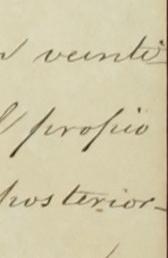 veinti
propio
posterior-